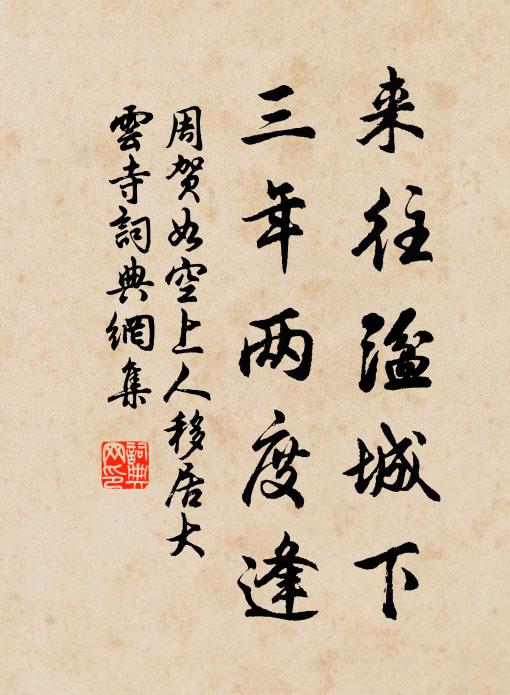 来往湓城下
三年两度逢
周贺如空上人移居大
雲寺詞典網集
詞典
网印